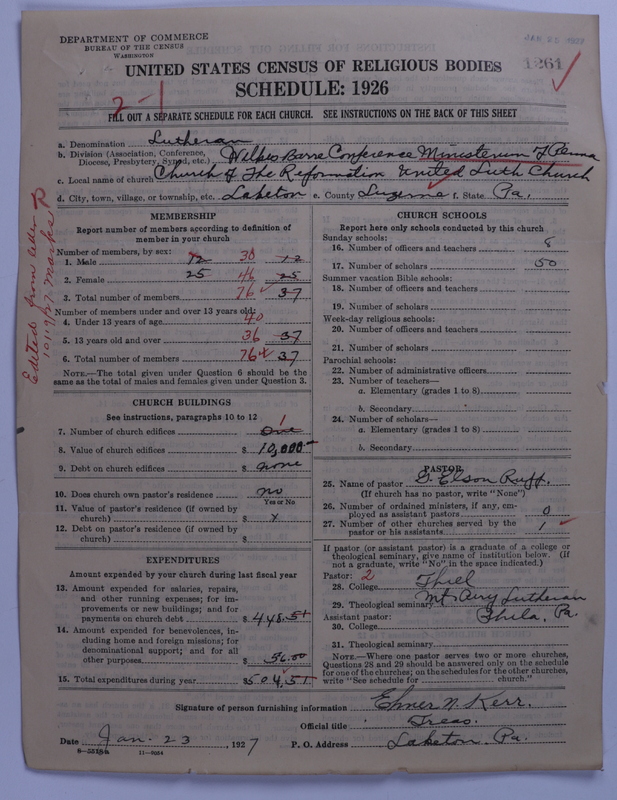 DEPARTMENT OF COMMERCE
BUREAU OF THE CENSUS
WASHINGTON
JAN 25 1927
1261
UNITED STATES CENSUS OF RELIGIOUS BODIES
SCHEDULE: 1926
2-1
FILL OUT A SEPARATE SCHEDULE FOR EACH CHURCH. SEE INSTRUCTIONS ON THE BACK OF THIS SHEET
a. Denomination Lutheran
b. Division (Association, Conference, Diocese, Presbytery, Synod, etc.) Wilkes Barre Conference Ministerium of Penna
c. Local name of church Church of The Reformation United Luth Church
d. City, town, village, or township, etc. Laketon e. County Luzerne f. State Pa.
Edited from letter
10/19/27
MEMBERSHIP
Report number of members according to definition of
member in your church
Number of members, by sex:
1. Male 12 30 12
2. Female 25 46 25
3. Total number of members 76 37
Number of members under and over 13 years old:
4. Under 13 years of age 40
5. 13 years old and over 36 37
6. Total number of members 76 37
NOTE.—The total given under Question 6 should be
same as the total of males and females given under Question 3.
CHURCH BUILDINGS
See instructions, paragraphs 10 to 12
1
7. Number of church edifices One
8. Value of church edifices $ 10,000
9. Debt on church edifices $ none
10. Does church own pastor's residence no
Yes or No
11. Value of pastor's residence (if owned by
church) $ x
12. Debt on pastor's residence (if owned by
church) $
EXPENDITURES
Amount expended by your church during last fiscal year
13. Amount expended for salaries, repairs,
and other running expenses; for im-
provements or new buildings; and for
payments on church debt $ 448.51
14. Amount expended for benevolences, in-
cluding home and foreign missions; for
denominational support; and for all
other purposes $ 56.00
15. Total expenditures during year $ 504.51
CHURCH SCHOOLS
Report here only schools conducted by this church
Sunday schools:
16. Number of officers and teachers 8
17. Number of scholars 50
Summer vacation Bible schools:
18. Number of officers and teachers
19. Number of scholars
Week-day religious schools:
20. Number of officers and teachers
21. Number of scholars
Parochial schools:
22. Number of administrative officers
23. Number of teachers—
a. Elementary (grades 1 to 8)
b. Secondary
24. Number of scholars—
a. Elementary (grades 1 to 8)
b. Secondary
PASTOR
25. Name of pastor G. Elson Ruff
(If church has no pastor, write "None")
26. Number of ordained ministers, if any, em-
ployed as assistant pastors 0
27. Number of other churches served by the
pastor or his assistants 1
If pastor (or assistant pastor) is a graduate of a college or
theological seminary, give name of institution below. (If
not a graduate, write "No" in the space indicated.)
Pastor: 2
28. College Thiel
29. Theological seminary Mt. Airy Lutheran
Assistant pastor: Phila, Pa.
30. College
31. Theological seminary
NOTE.—Where one pastor serves two or more churches,
Questions 28 and 29 should be answered only on the schedule
for one of the churches; on the schedules for the other churches,
write "See schedule for church."
Signature of person furnishing information Elmer N. Kerr.
Official title Treas.
Date Jan. 23, 1927 P. O. Address Laketon, Pa.